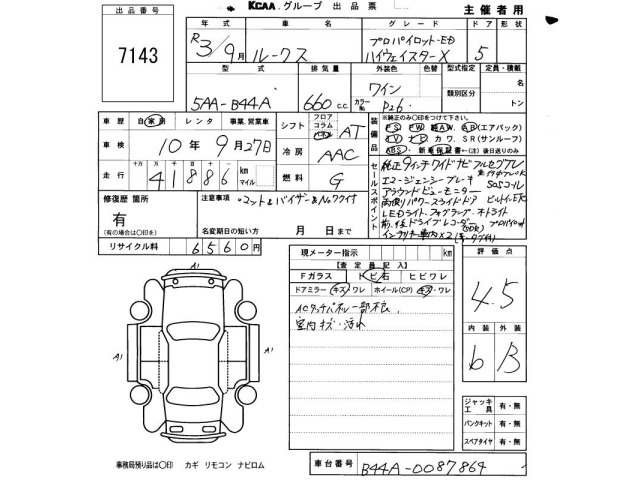 KCAA グループ 出品票
主催者用
出品番号
7143
年式 車名 グレード ドア 形状
R3/9月 ルークス プロパイロット-ED ハイウェイスターX 5
型式 排気量 外装色 色替 型式指定 定員・積載
5AA-B44A 660 c.c. ワイン
カラーNo. P26 類別区分 名 トン
車歴 自家用 レンタ 事業、営業車
シフト フロア コラム インパネ AT
装備品
※純正のみ〇印をつけて下さい。
PS PW 純AW. AB (エアバック)
TV ナビ カワ. SR (サンルーフ)
ABS. 新車保証書←(注) 後日送りのみ
車検 10年9月27日
冷房 AAC
走行 十万 万 千 百 十 一
41886 km マイル
燃料 G
セールスポイント
純正9インチワイドナビ フルセグTV
エマージェンシーブレーキ
SOSコール
アラウンドビューモニター
両側パワースライドドア ビルトインETC
LEDライト.フォグランプ.オートライト
前、後ドライブレコーダー プロパイロット
インテリキー車内×2
修復歴 箇所
有
(有の場合は〇印)
注意事項
マット&バイザー&Noワクイす
名変期日の短い方 月 日まで
リサイクル料 6560円
現メーター指示 km
【査定員記入】
Fガラス トビ石 ヒビワレ
ドアミラー キズ・ワレ ホイール(CP) キズ・ワレ
ACタッチパネル一部不良
室内キズ・汚れ
評価点
4.5
内装 外装
6 B
A1
A1
ジャッキ工具 有・無
パンクキット 有・無
スペアタイヤ 有・無
事務局預り品は〇印 カギ リモコン ナビロム
車台番号 B44A-0087864